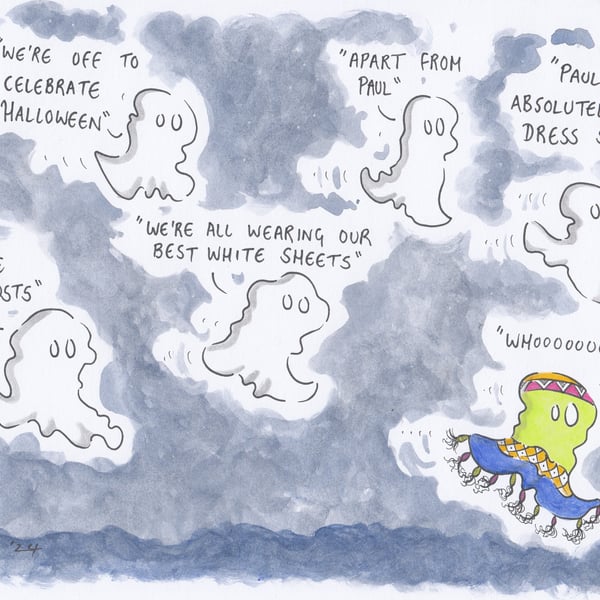 "WE'RE OFF TO
CELEBRATE
HALLOWEEN"
"APART FROM
PAUL"
"PAUL
ABSOLUTEL
DRESS S
"WE'RE ALL WEARING OUR
BEST WHITE SHEETS"
E
OSTS"
"WHOOOOOOO
'24